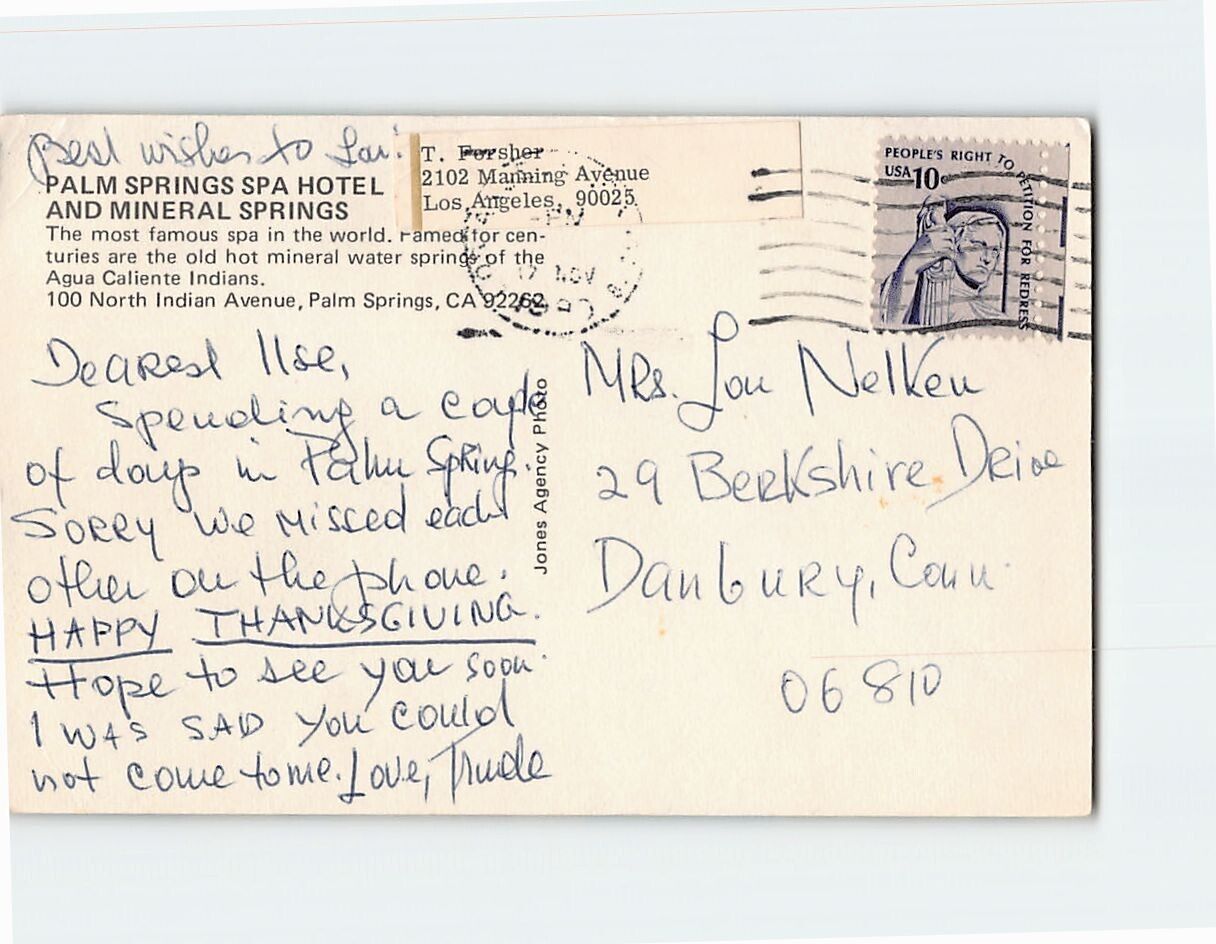 Best wishes to Lou!
PALM SPRINGS SPA HOTEL
AND MINERAL SPRINGS
The most famous spa in the world. Famed for cen-
turies are the old hot mineral water springs of the
Agua Caliente Indians.
100 North Indian Avenue, Palm Springs, CA 92262
T. Forsher
2102 Manning Avenue
Los Angeles, 90025
PM
17 NOV
PEOPLE'S RIGHT TO PETITION FOR REDRESS
USA 10c
Dearest Ilse,
Spending a couple
of days in Palm Springs.
Sorry we missed each
other on the phone.
HAPPY THANKSGIVING.
Hope to see you soon.
I WAS SAD you could
not come to me. Love, Trude
Jones Agency Photo
MRs. Lou Nelken
29 Berkshire Drive
Danbury, Conn.
06810